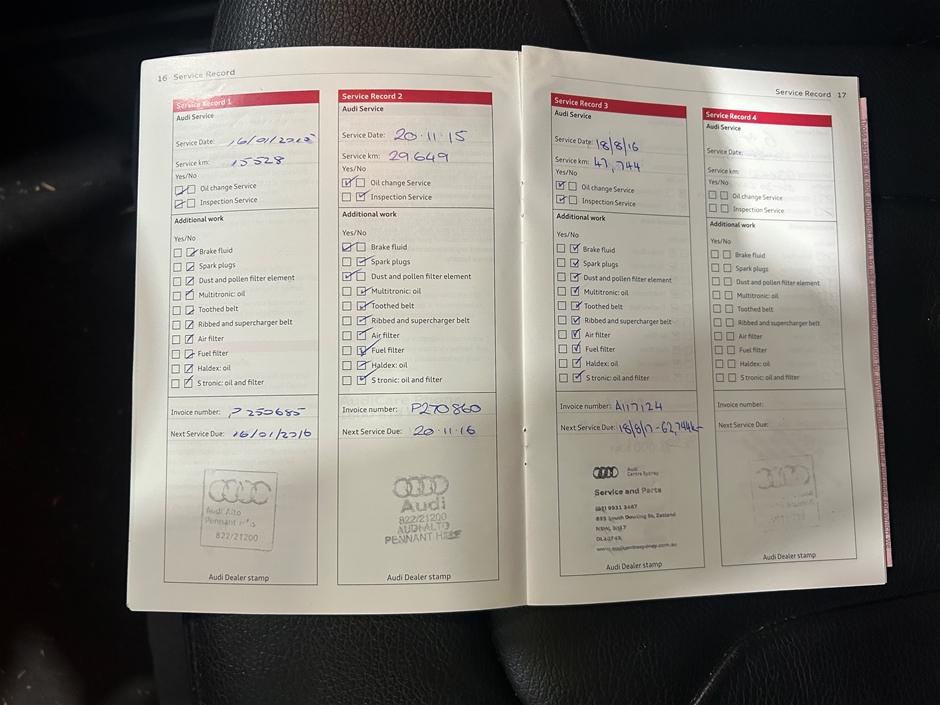 16 Service Record
Service Record 1
Audi Service
Service Date: 16/01/2015
Service km: 15528
Yes/No
Oil change Service
Inspection Service
Additional work
Yes/No
Brake fluid
Spark plugs
Dust and pollen filter element
Multitronic: oil
Toothed belt
Ribbed and supercharger belt
Air filter
Fuel filter
Haldex: oil
S tronic: oil and filter
Invoice number: P250685
Next Service Due: 16/01/2016
Audi Alto
Pennant
822/21200
Audi Dealer stamp
Service Record 2
Audi Service
Service Date: 20.11.15
Service km: 29649
Yes/No
Oil change Service
Inspection Service
Additional work
Yes/No
Brake fluid
Spark plugs
Dust and pollen filter element
Multitronic: oil
Toothed belt
Ribbed and supercharger belt
Air filter
Fuel filter
Haldex: oil
S tronic: oil and filter
Invoice number: P270860
Next Service Due: 20.11.16
Audi
822/21200
AUDI ALTO
PENNANT
Audi Dealer stamp
Service Record 17
Service Record 3
Audi Service
Service Date: 18/8/16
Service km: 47,744
Yes/No
Oil change Service
Inspection Service
Additional work
Yes/No
Brake fluid
Spark plugs
Dust and pollen filter element
Multitronic: oil
Toothed belt
Ribbed and supercharger belt
Air filter
Fuel filter
Haldex: oil
S tronic: oil and filter
Invoice number: A117124
Next Service Due: 18/8/17-62,744k
Audi
Centre Sydney
Service and Parts
South Dowling St, Zetland
NSW,
Audi Dealer stamp
Service Record 4
Audi Service
Service Date:
Service km:
Yes/No
Oil change Service
Inspection Service
Additional work
Yes/No
Brake fluid
Spark plugs
Dust and pollen filter element
Multitronic: oil
Toothed belt
Ribbed and supercharger belt
Air filter
Fuel filter
Haldex: oil
S tronic: oil and filter
Invoice number:
Next Service Due:
Audi Dealer stamp